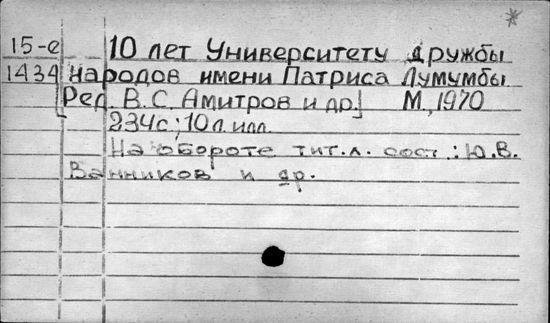 15-е 10 лет Университету дружбы
1434 народов имени Патриса Лумумбы
[Ред. В.С. Амитров и др.] М., 1970
234с.; 10 л. илл.
На обороте тит. л. сост.: Ю.В.
Ванников и др.